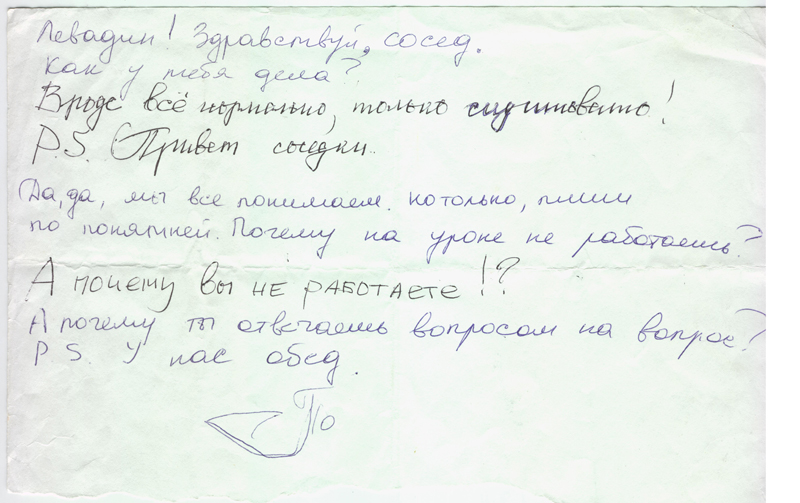 Левадин! Здравствуй, сосед.
Как у тебя дела?
Вроде всё нормально, только скучновато!
P.S. Привет соседки
Да, да, мы все понимаем. но только, пиши
по понятней. Почему на уроке не работаешь?
А почему вы не работаете!?
А почему ты отвечаешь вопросом на вопрос?
P S. У нас обед.
По